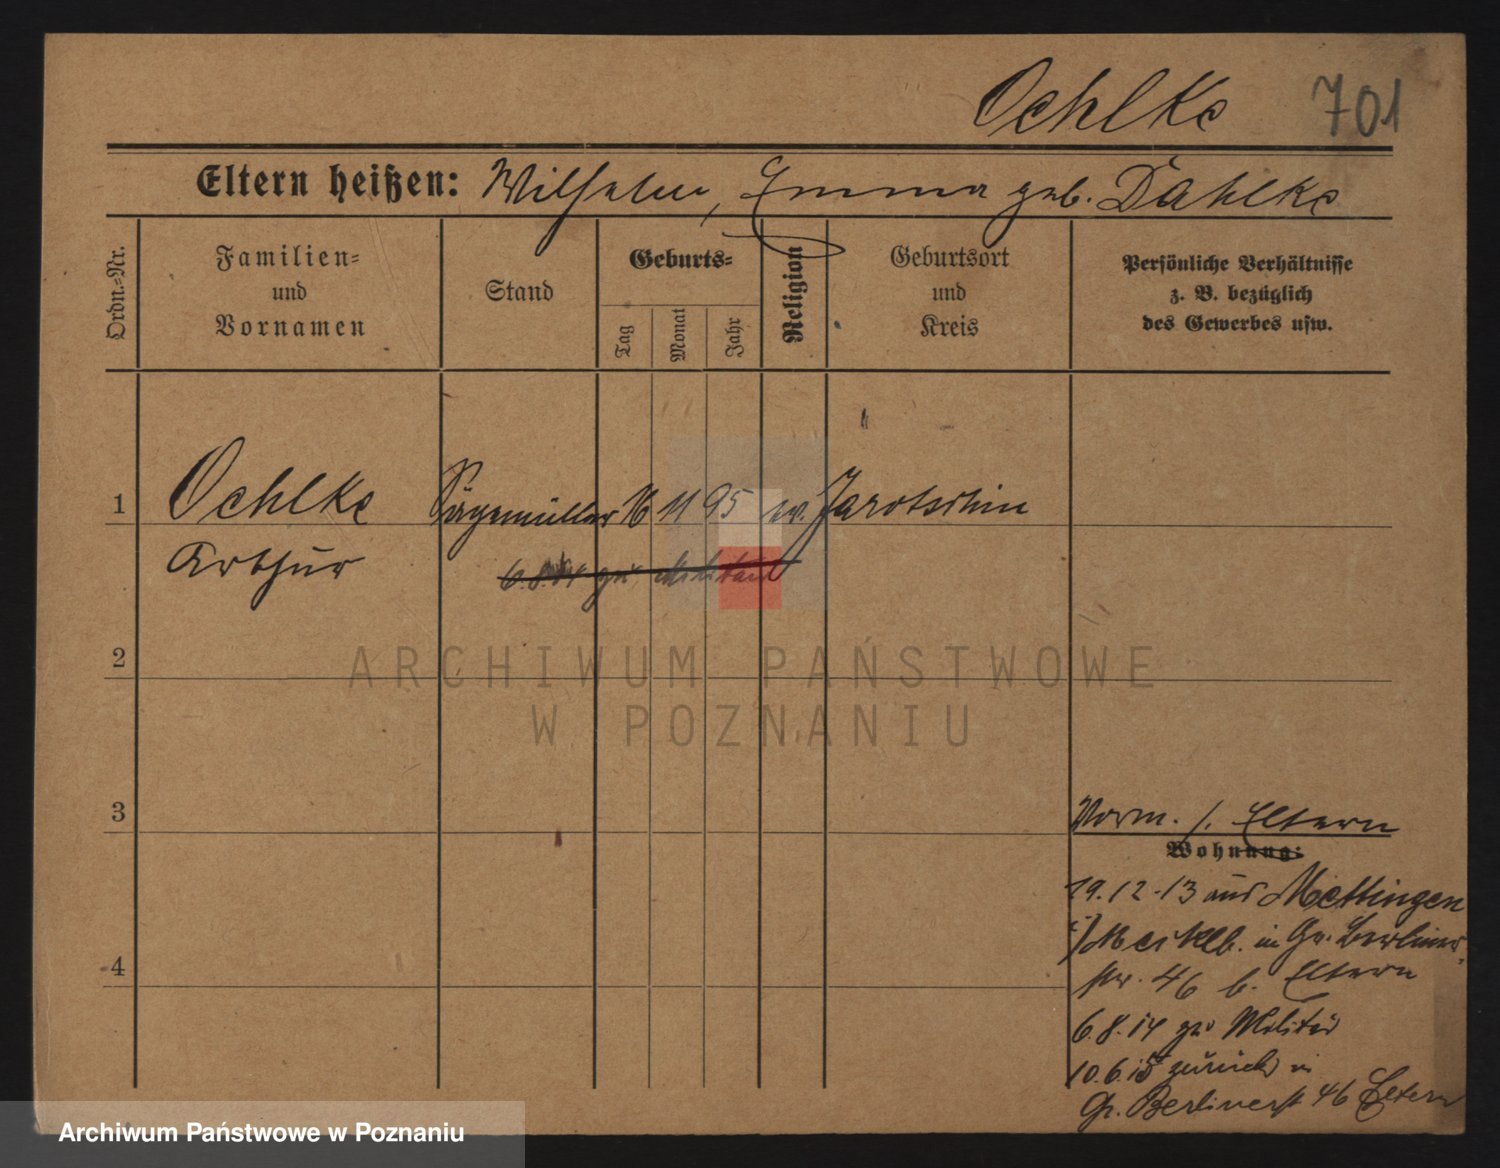 Oehlke 701
Eltern heißen: Wilhelm, Emma geb. Dahlke
Ordn.-Nr.
Familien-
und
Vornamen
Stand
Geburts-
Tag
Monat
Jahr
Religion
Geburtsort
und
Kreis
Persönliche Verhältnisse
z. B. bezüglich
des Gewerbes usw.
1 Oehlke Sägemüller 16 11 95 ev. Jarotschin
Arthur
6.8.14 zu Militär
2
ARCHIWUM PAŃSTWOWE
W POZNANIU
3
Vorm. s. Eltern
Wohnung:
19.12.13 aus Mettingen
i/ Meckl. in Gr. Berliner-
4
str. 46 b. Eltern
6.8.14 zu Militär
10.6.15 zurück in
Gr. Berlinerst 46 Eltern
Archiwum Państwowe w Poznaniu